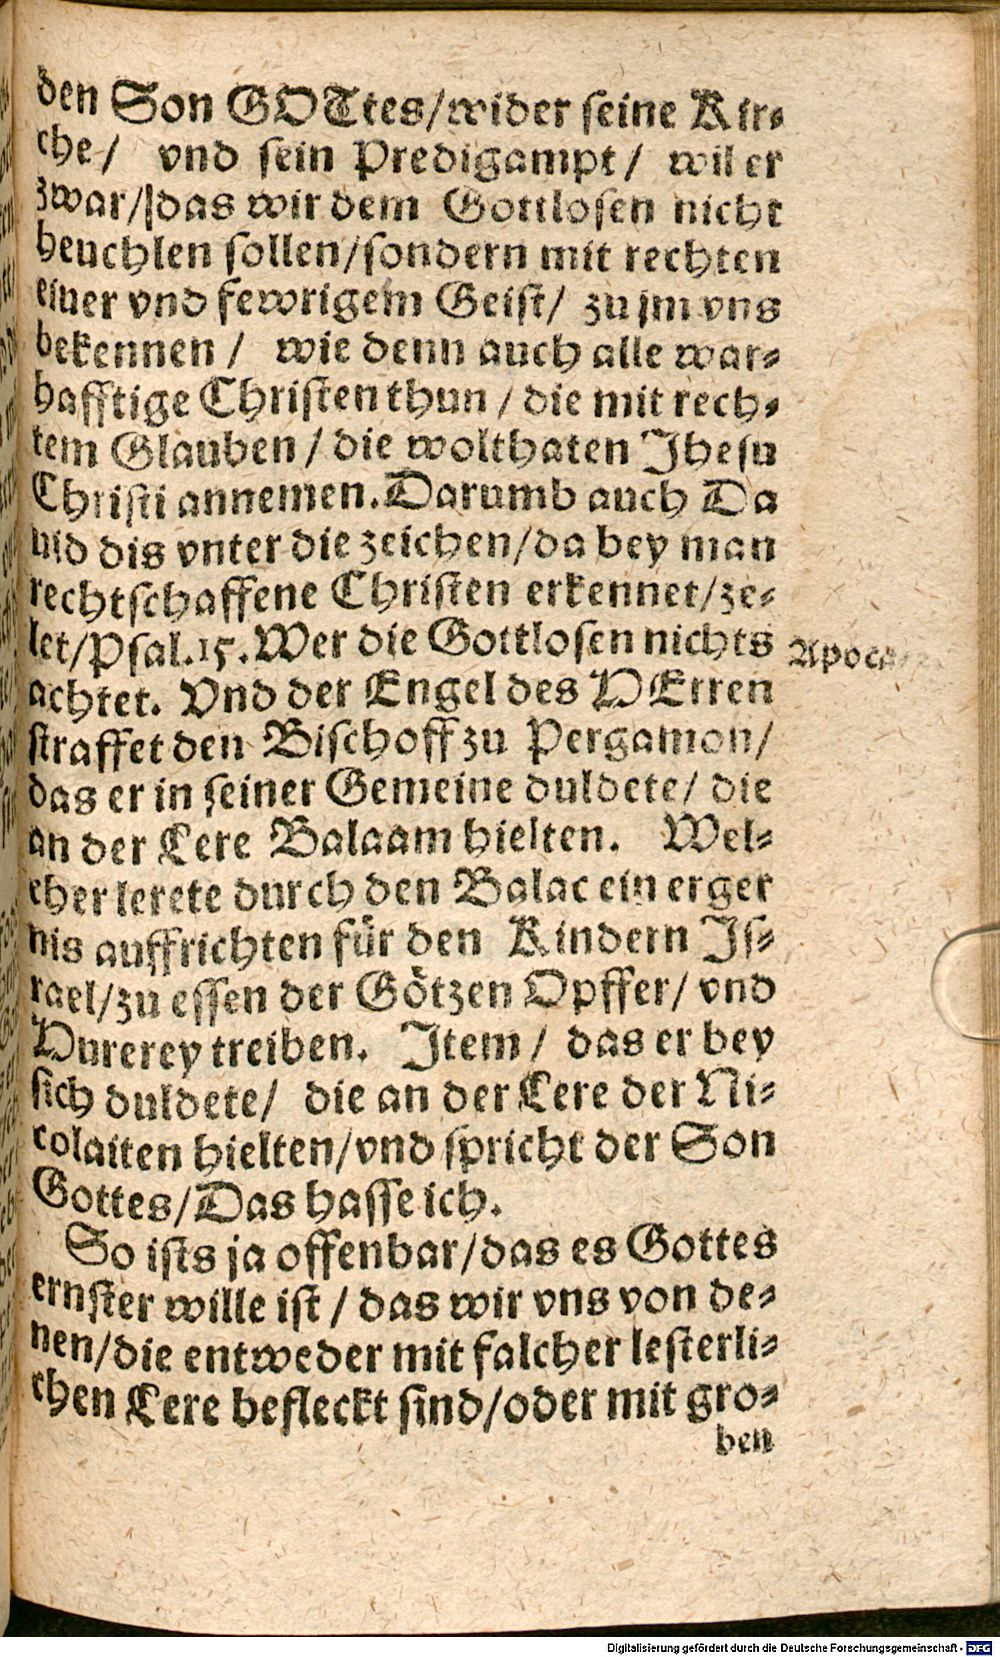 den Son GOTtes/wider seine Kir-
che/ vnd sein Predigampt/ wil er
zwar/das wir dem Gottlosen nicht
heuchlen sollen/sondern mit rechten
eiuer vnd fewrigem Geist/ zu jm vns
bekennen / wie denn auch alle war-
hafftige Christen thun / die mit rech-
tem Glauben / die wolthaten Jhesu
Christi annemen. Darumb auch Da
uid dis vnter die zeichen/da bey man
rechtschaffene Christen erkennet/ze-
let/Psal.15. Wer die Gottlosen nichts
achtet. Vnd der Engel des HErren
straffet den Bischoff zu Pergamon/
das er in seiner Gemeine duldete/ die
an der Lere Balaam hielten. Wel-
cher lerete durch den Balac ein erger
nis auffrichten für den Kindern Is-
rael/zu essen der Götzen Opffer/ vnd
Hurerey treiben. Item / das er bey
sich duldete/ die an der Lere der Ni-
colaiten hielten/vnd spricht der Son
Gottes/Das hasse ich.
So ists ja offenbar/das es Gottes
ernster wille ist / das wir vns von de-
nen/die entweder mit falcher lesterli-
chen Lere befleckt sind/oder mit gro-
ben
Digitalisierung gefördert durch die Deutsche Forschungsgemeinschaft - DFG